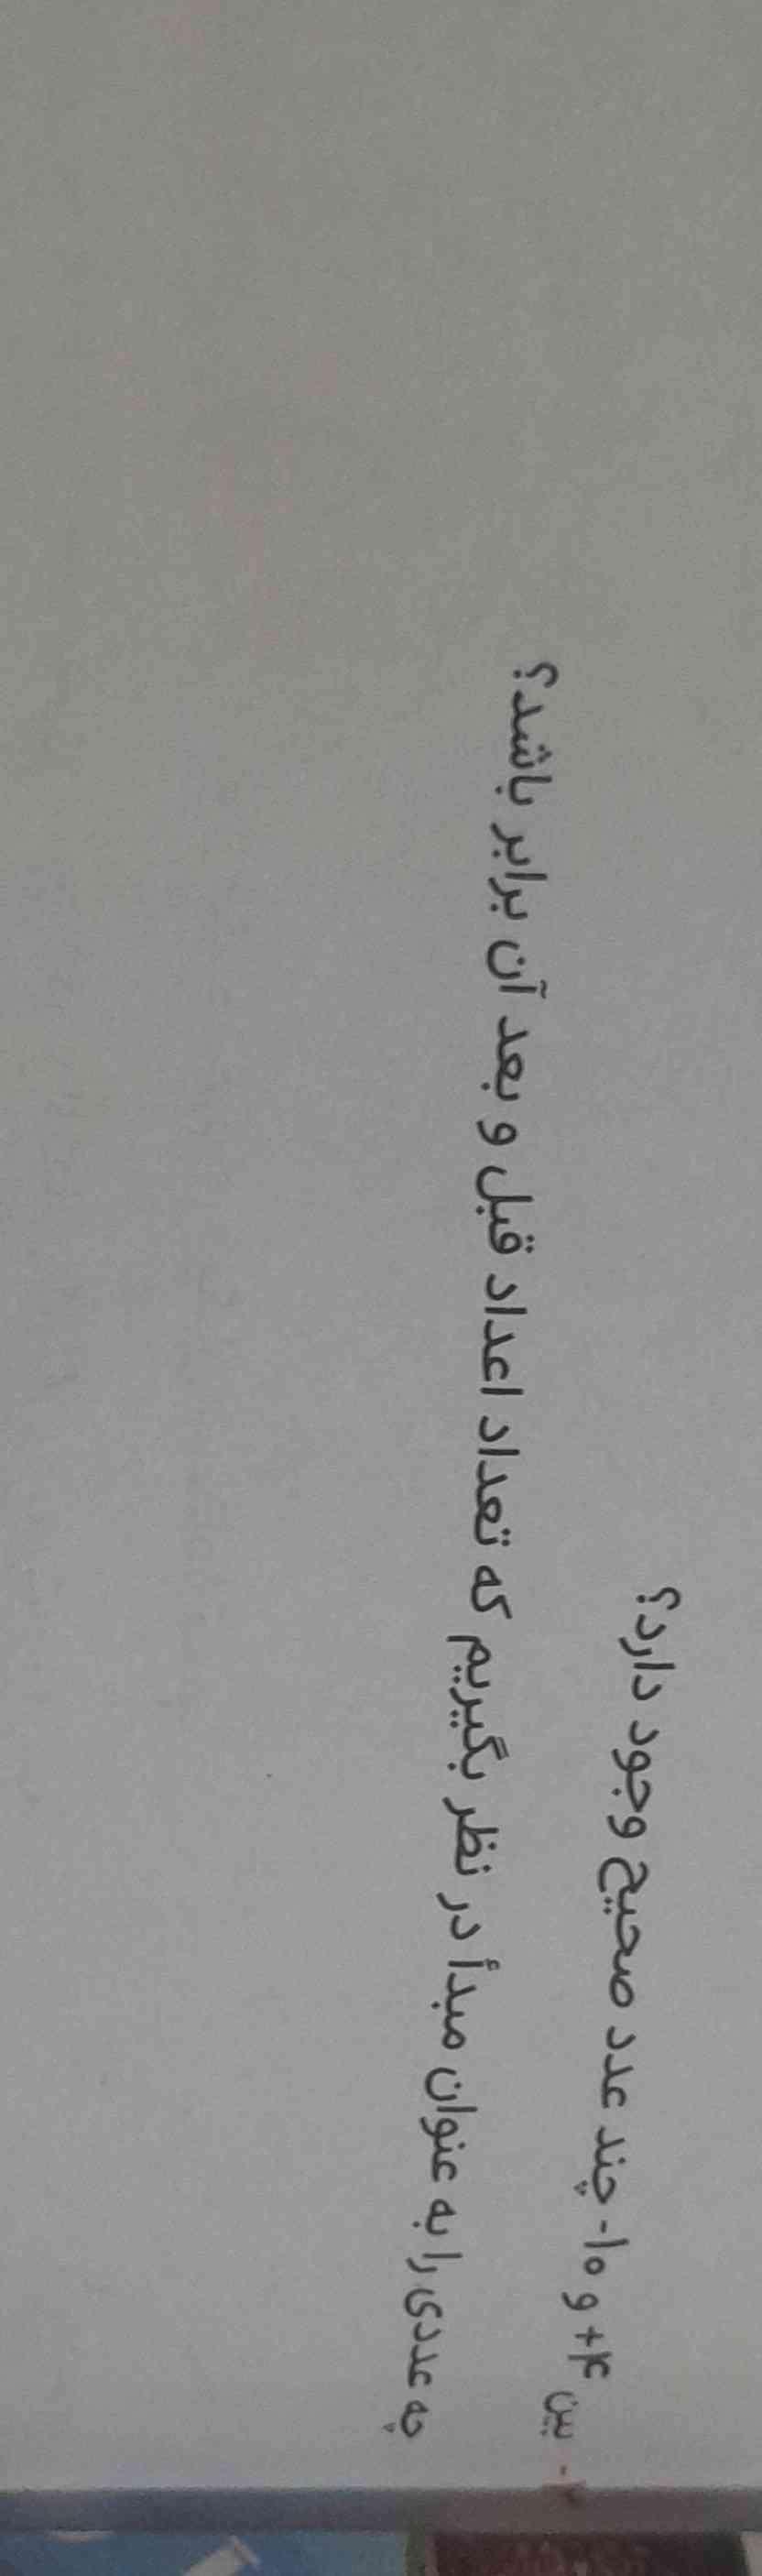 ۲- بین ۴+ و ۱۰- چند عدد صحیح وجود دارد؟
چه عددی را به عنوان مبدأ در نظر بگیریم که تعداد اعداد قبل و بعد آن برابر باشد؟